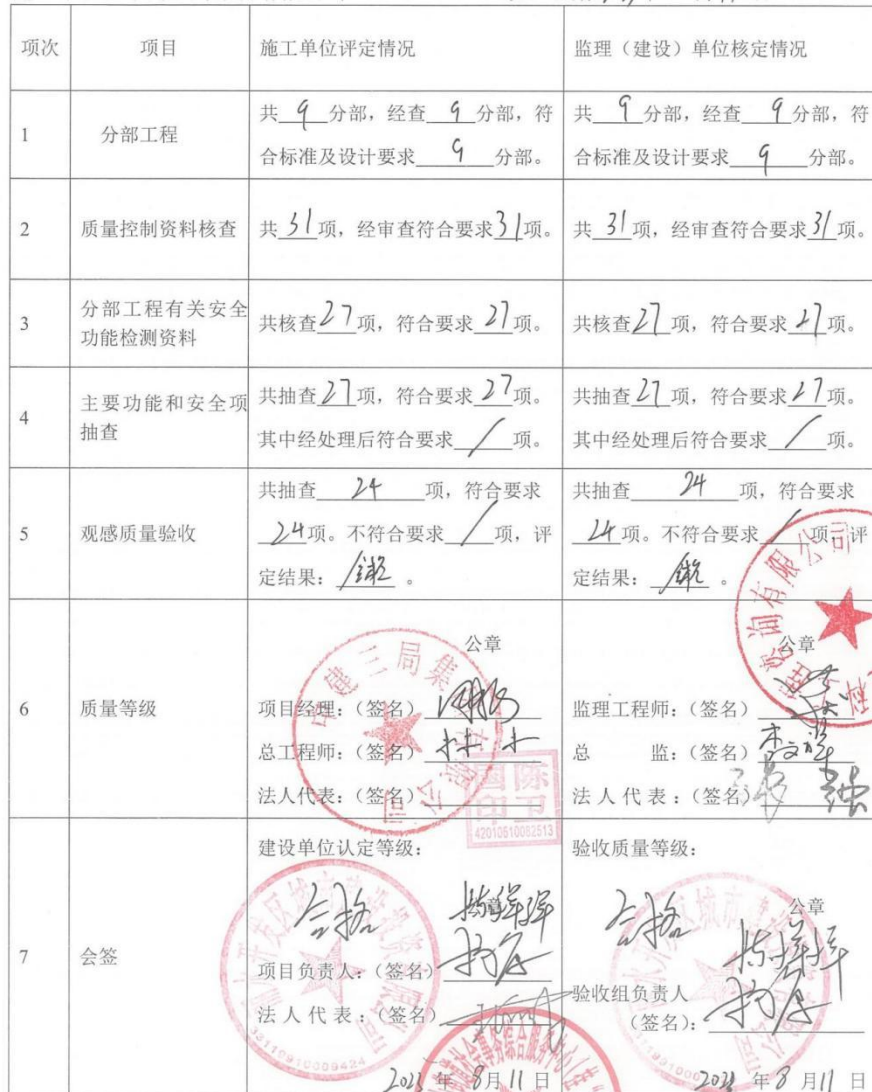 项次 项目 施工单位评定情况 监理（建设）单位核定情况
1 分部工程
共 9 分部，经查 9 分部，符
合标准及设计要求 9 分部。
共 9 分部，经查 9 分部，符
合标准及设计要求 9 分部。
2 质量控制资料核查 共 31 项，经审查符合要求 31 项。 共 31 项，经审查符合要求 31 项。
3 分部工程有关安全
功能检测资料
共核查 27 项，符合要求 27 项。 共核查 27 项，符合要求 27 项。
4 主要功能和安全项
抽查
共抽查 27 项，符合要求 27 项。
其中经处理后符合要求 / 项。
共抽查 27 项，符合要求 27 项。
其中经处理后符合要求 / 项。
5 观感质量验收
共抽查 24 项，符合要求
24 项。不符合要求 / 项，评
定结果： 。
共抽查 24 项，符合要求
24 项。不符合要求 / 项，评
定结果： 。
6 质量等级
公章
项目经理：（签名）
总工程师：（签名）
法人代表：（签名）
中建三局集团有限公司
42010610082513
公章
监理工程师：（签名）
总 监：（签名）
法人代表：（签名）
咨询有限公司
7 会签
建设单位认定等级：
合格
公章
项目负责人：（签名）
法人代表：（签名）
33110910009424
2023 年 8 月 11 日
验收质量等级：
合格
公章
验收组负责人
（签名）：
2023 年 8 月 11 日